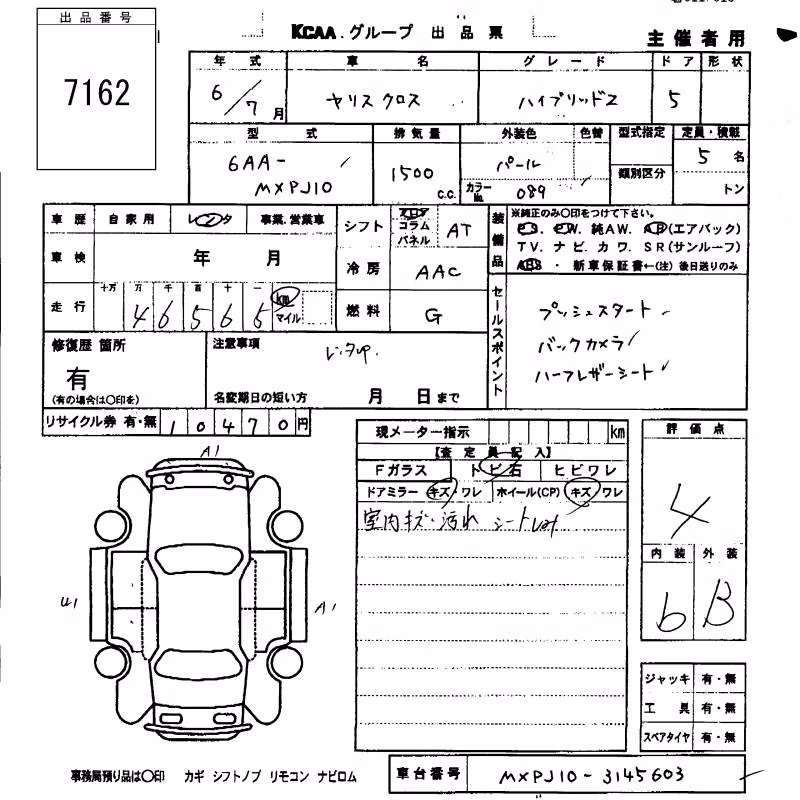 出品番号
7162
KCAA.グループ 出品票
主催者用
年式 車名 グレード ドア 形状
6/7月 ヤリスクロス ハイブリッドZ 5
型式 排気量 外装色 色替 型式指定 定員・積載
6AA-
MXPJ10 1500 C.C. パール カラーNo. 089 類別区分 5名 トン
車歴 自家用 レンタ 事業、営業車
車検 年 月
走行 十万 万 千 百 十 一
46565 km マイル
シフト フロア コラム パネル AT
冷房 AAC
燃料 G
装備品
※純正のみ○印をつけて下さい。
PS. PW. 純AW. AB(エアバック)
TV. ナビ. カワ. SR(サンルーフ)
ABS ・ 新車保証書←(注)後日送りのみ
セールスポイント
プッシュスタート
バックカメラ
ハーフレザーシート
修復歴 箇所
有
(有の場合は○印を)
注意事項
レンタup.
名変期日の短い方 月 日まで
リサイクル券 有・無 10470円
現メーター指示 km
【査定員記入】
Fガラス トビ石 ヒビワレ
ドアミラー キズ・ワレ ホイール(CP) キズ ワレ
室内キズ・汚れ シート
評価点
4
内装 外装
b B
A1
U1
A1
ジャッキ 有・無
工具 有・無
スペアタイヤ 有・無
事務局預り品は○印 カギ シフトノブ リモコン ナビロム
車台番号 MXPJ10-3145603